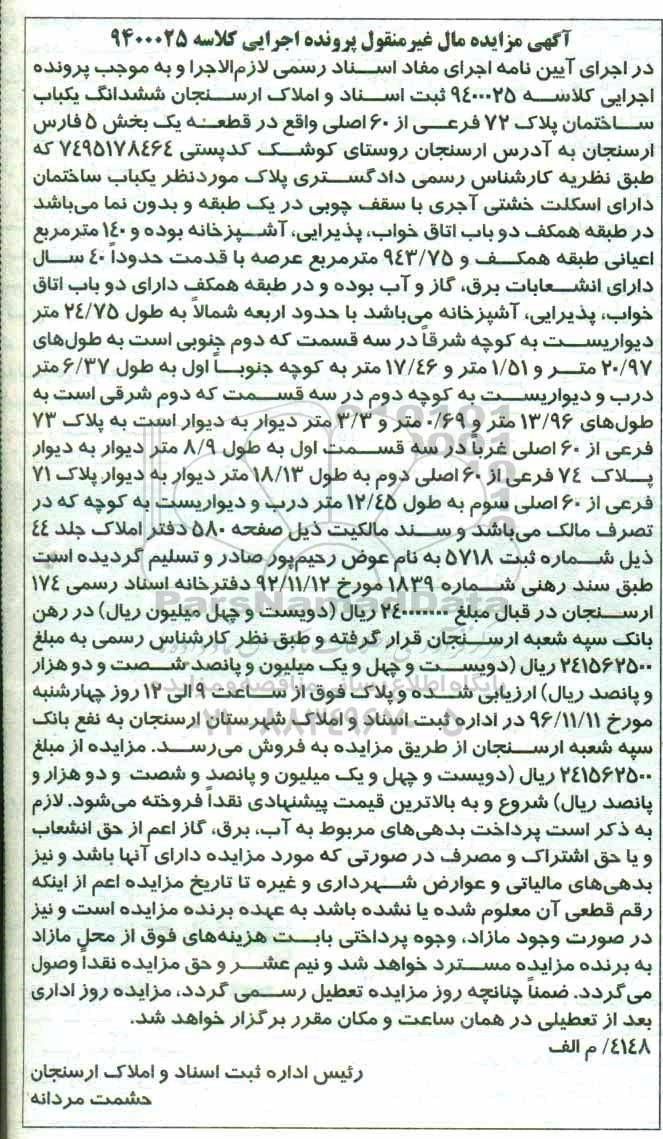 آگهی مزایده مال غیرمنقول پرونده اجرایی کلاسه ۹۴۰۰۰۲۵
در اجرای آیین نامه اجرای مفاد اسناد رسمی لازم‌الاجرا و به موجب پرونده
اجرایی کلاسه ۹۴۰۰۰۲۵ ثبت اسناد و املاک ارسنجان ششدانگ یکباب
ساختمان پلاک ۷۲ فرعی از ۶۰ اصلی واقع در قطعه یک بخش ۵ فارس
ارسنجان به آدرس ارسنجان روستای کوشک کدپستی ۷۴۹۵۱۷۸۴۶۴ که
طبق نظریه کارشناس رسمی دادگستری پلاک موردنظر یکباب ساختمان
دارای اسکلت خشتی آجری با سقف چوبی در یک طبقه و بدون نما می‌باشد
در طبقه همکف دو باب اتاق خواب، پذیرایی، آشپزخانه بوده و ۱۴۰ مترمربع
اعیانی طبقه همکف و ۹۴۳/۷۵ مترمربع عرصه با قدمت حدوداً ۴۰ سال
دارای انشعابات برق، گاز و آب بوده و در طبقه همکف دارای دو باب اتاق
خواب، پذیرایی، آشپزخانه می‌باشد با حدود اربعه شمالاً به طول ۲۴/۷۵ متر
دیواریست به کوچه شرقاً در سه قسمت که دوم جنوبی است به طول‌های
۲۰/۹۷ متر و ۱/۵۱ متر و ۱۷/۴۶ متر به کوچه جنوباً اول به طول ۶/۳۷ متر
درب و دیواریست به کوچه دوم در سه قسمت که دوم شرقی است به
طول‌های ۱۳/۹۶ متر و ۰/۶۹ متر و ۳/۳ متر دیوار به دیوار است به پلاک ۷۳
فرعی از ۶۰ اصلی غرباً در سه قسمت اول به طول ۸/۹ متر دیوار به دیوار
پلاک ۷۴ فرعی از ۶۰ اصلی دوم به طول ۱۸/۱۳ متر دیوار به دیوار پلاک ۷۱
فرعی از ۶۰ اصلی سوم به طول ۱۲/۴۵ متر درب و دیواریست به کوچه که در
تصرف مالک می‌باشد و سند مالکیت ذیل صفحه ۵۸۰ دفتر املاک جلد ۴۴
ذیل شماره ثبت ۵۷۱۸ به نام عوض رحیم‌پور صادر و تسلیم گردیده است
طبق سند رهنی شماره ۱۸۳۹ مورخ ۹۲/۱۱/۱۲ دفترخانه اسناد رسمی ۱۷۴
ارسنجان در قبال مبلغ ۲۴۰۰۰۰۰۰۰ ریال (دویست و چهل میلیون ریال) در رهن
بانک سپه شعبه ارسنجان قرار گرفته و طبق نظر کارشناس رسمی به مبلغ
۲۴۱۵۶۲۵۰۰ ریال (دویست و چهل و یک میلیون و پانصد شصت و دو هزار
و پانصد ریال) ارزیابی شده و پلاک فوق از ساعت ۹ الی ۱۲ روز چهارشنبه
مورخ ۹۶/۱۱/۱۱ در اداره ثبت اسناد و املاک شهرستان ارسنجان به نفع بانک
سپه شعبه ارسنجان از طریق مزایده به فروش می‌رسد. مزایده از مبلغ
۲۴۱۵۶۲۵۰۰ ریال (دویست و چهل و یک میلیون و پانصد و شصت و دو هزار و
پانصد ریال) شروع و به بالاترین قیمت پیشنهادی نقداً فروخته می‌شود. لازم
به ذکر است پرداخت بدهی‌های مربوط به آب، برق، گاز اعم از حق انشعاب
و یا حق اشتراک و مصرف در صورتی که مورد مزایده دارای آنها باشد و نیز
بدهی‌های مالیاتی و عوارض شهرداری و غیره تا تاریخ مزایده اعم از اینکه
رقم قطعی آن معلوم شده یا نشده باشد به عهده برنده مزایده است و نیز
در صورت وجود مازاد، وجوه پرداختی بابت هزینه‌های فوق از محل مازاد
به برنده مزایده مسترد خواهد شد و نیم عشر و حق مزایده نقداً وصول
می‌گردد. ضمناً چنانچه روز مزایده تعطیل رسمی گردد، مزایده روز اداری
بعد از تعطیلی در همان ساعت و مکان مقرر برگزار خواهد شد.
۴۱۴۸/ م الف
رئیس اداره ثبت اسناد و املاک ارسنجان
حشمت مردانه
ParsNamadData
پایگاه اطلاع رسانی مناقصه و مزایده